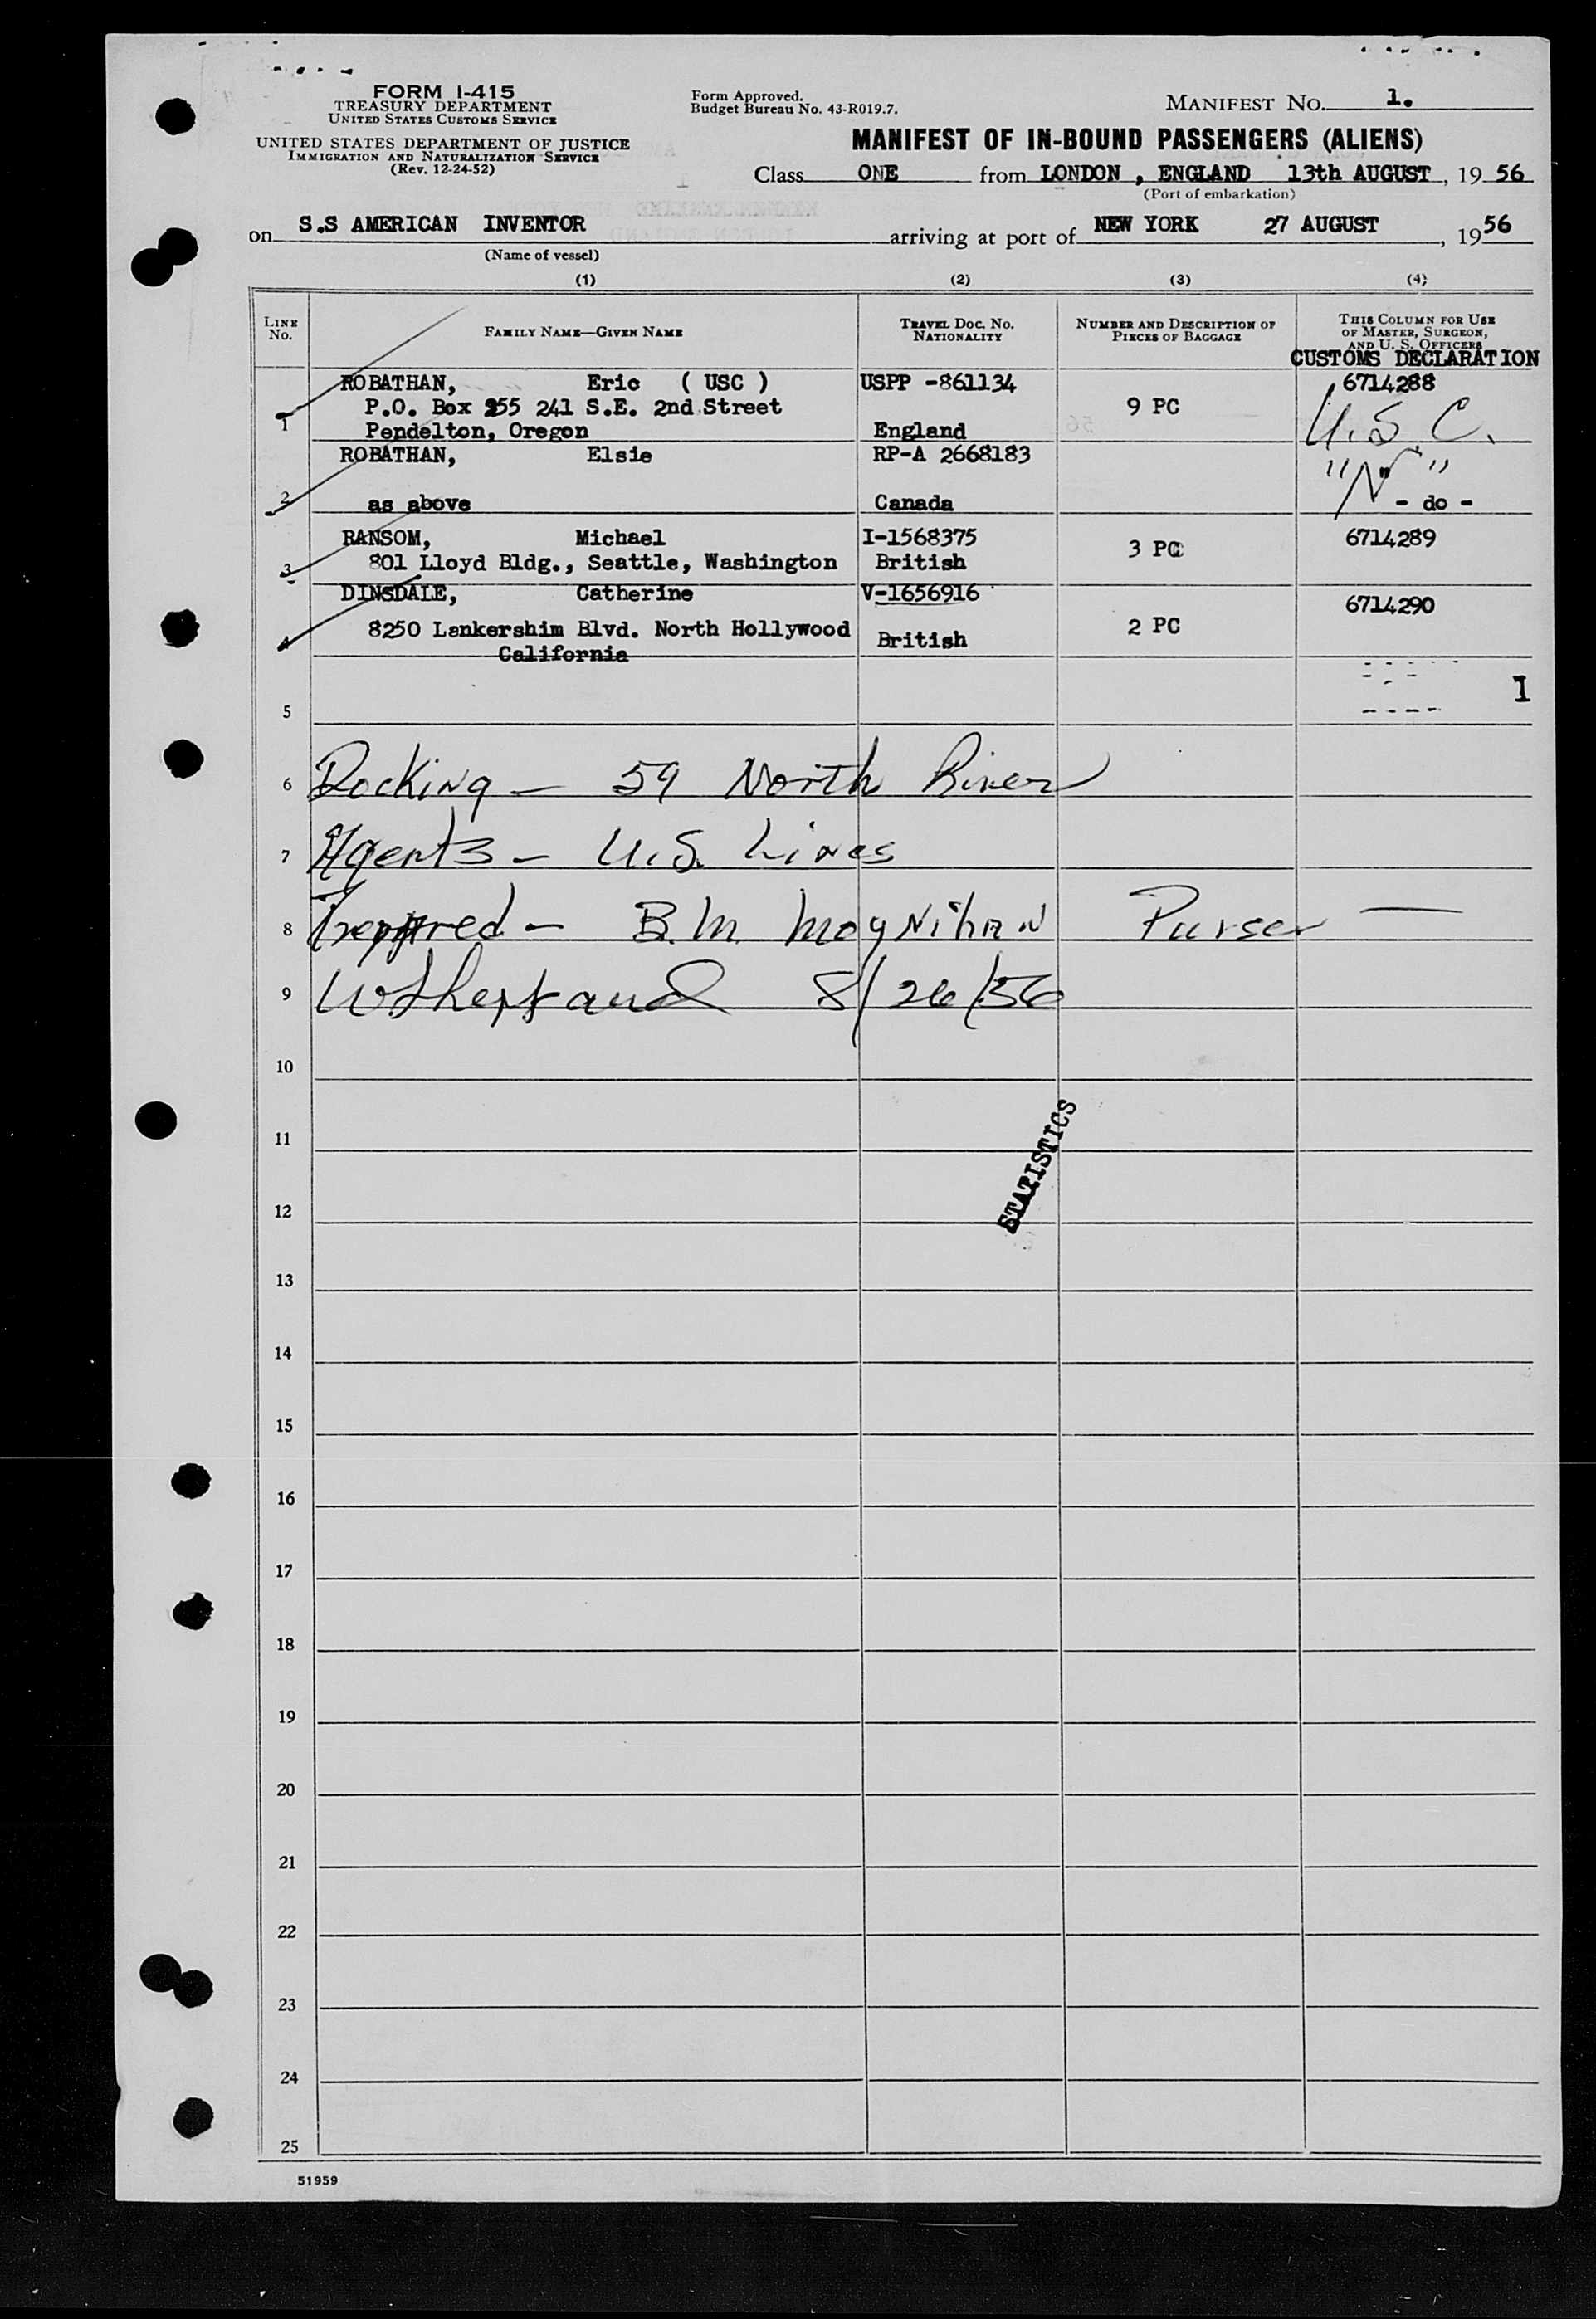 FORM I-415
TREASURY DEPARTMENT
UNITED STATES CUSTOMS SERVICE
UNITED STATES DEPARTMENT OF JUSTICE
IMMIGRATION AND NATURALIZATION SERVICE
(Rev. 12-24-52)
Form Approved.
Budget Bureau No. 43-R019.7.
MANIFEST NO. 1.
MANIFEST OF IN-BOUND PASSENGERS (ALIENS)
Class ONE from LONDON , ENGLAND 13th AUGUST , 19 56
(Port of embarkation)
on S.S AMERICAN INVENTOR arriving at port of NEW YORK 27 AUGUST , 19 56
(Name of vessel)
(1) (2) (3) (4)
LINE No. FAMILY NAME—GIVEN NAME TRAVEL DOC. NO. NATIONALITY NUMBER AND DESCRIPTION OF PIECES OF BAGGAGE THIS COLUMN FOR USE OF MASTER, SURGEON, AND U. S. OFFICERS
CUSTOMS DECLARATION
ROBATHAN, Eric ( USC ) USPP -861134 6714288
P.O. Box 255 241 S.E. 2nd Street 9 PC U.S.C.
1 Pendelton, Oregon England
ROBATHAN, Elsie RP-A 2668183 "N"
2 as above Canada - do -
RANSOM, Michael I-1568375 3 PC 6714289
3 801 Lloyd Bldg., Seattle, Washington British
DINSDALE, Catherine V-1656916 6714290
4 8250 Lankershim Blvd. North Hollywood British 2 PC
California
1
5
6 Docking - 59 North River
7 Agents - U.S. Lines
8 Prepared - B.M. Moynihan Purser
9 8/26/56
10
11
STATISTICS
12
13
14
15
16
17
18
19
20
21
22
23
24
25
51959